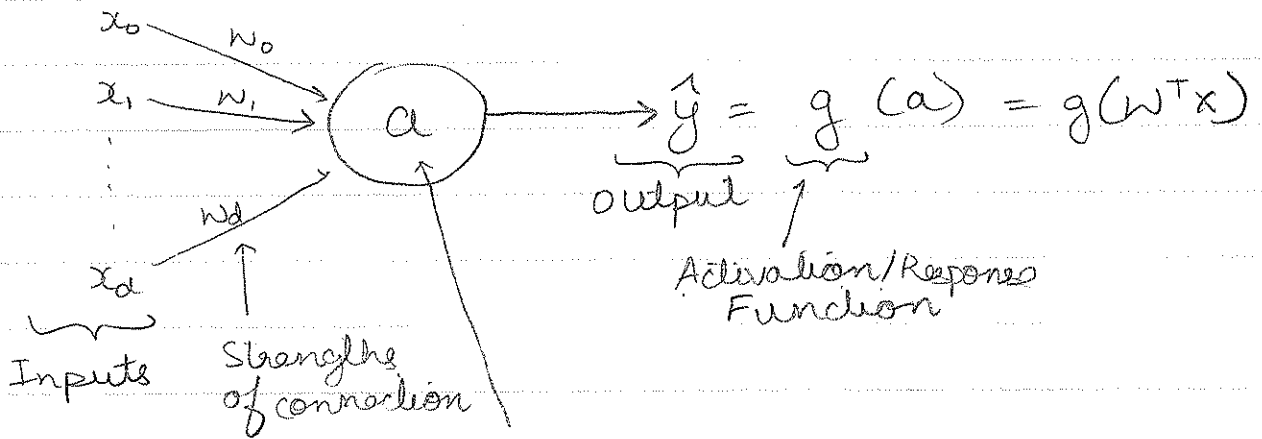 x₀ w₀
x₁ w₁ a ŷ = g (a) = g(wᵀx)
w_d
x_d
Output
Activation/Response
Function
Inputs
Strengths
of connection